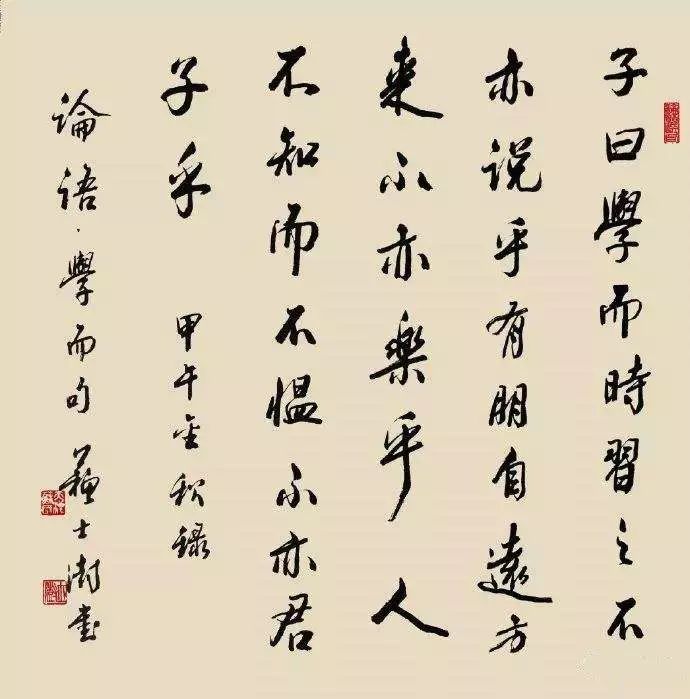 子曰學而時習之不
亦説乎有朋自遠方
來不亦樂乎人
不知而不愠不亦君
子乎
甲午金秋録
論語·學而句 蘇士澍書